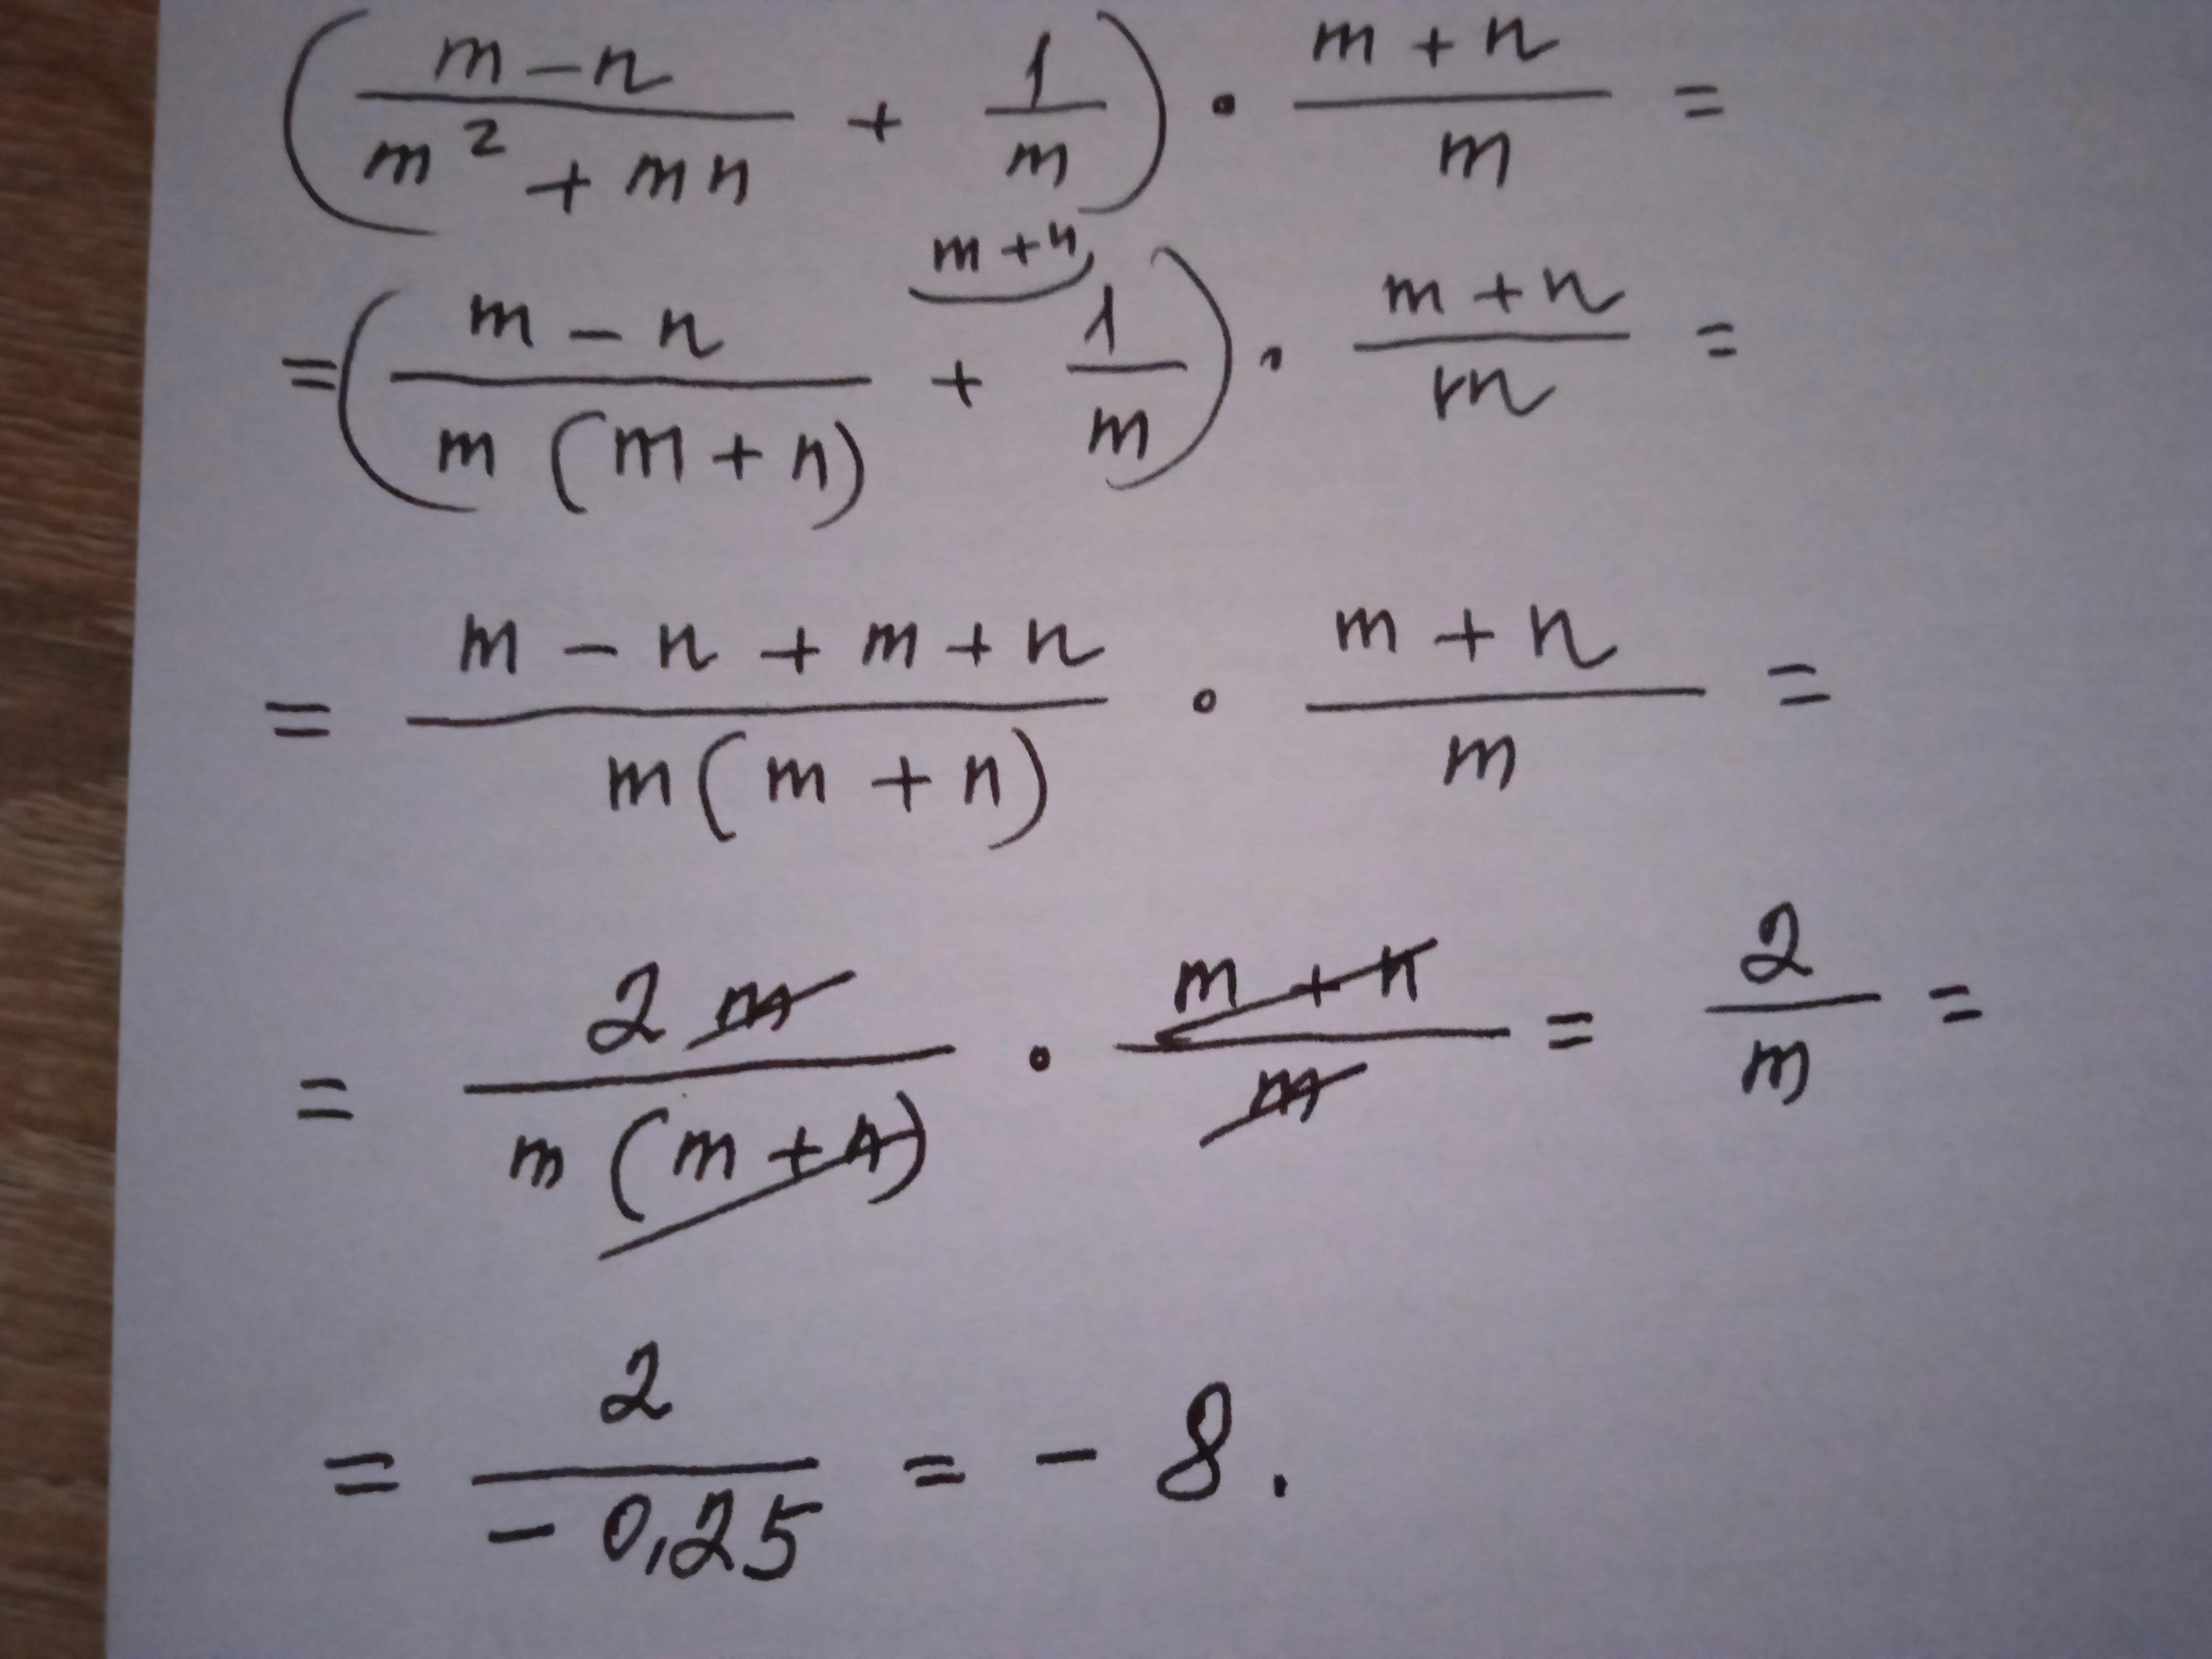 (\frac{m-n}{m^2+mn} + \frac{1}{m}) \cdot \frac{m+n}{m} =
= (\frac{m-n}{m(m+n)} + \frac{1}{m}^{m+n}) \cdot \frac{m+n}{m} =
= \frac{m-n+m+n}{m(m+n)} \cdot \frac{m+n}{m} =
= \frac{2m}{m(m+n)} \cdot \frac{m+n}{m} = \frac{2}{m} =
= \frac{2}{-0,25} = -8.